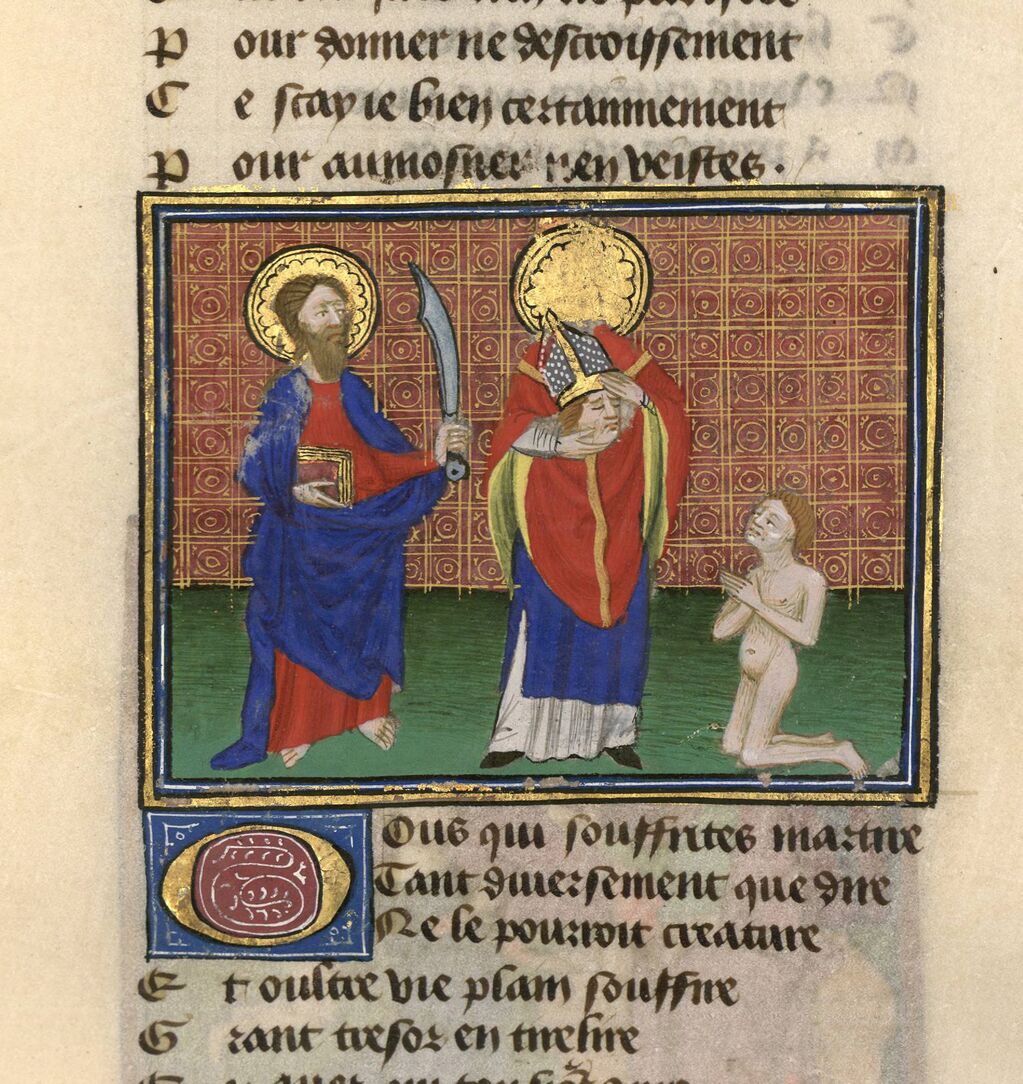 Pour donner ne descroissement
Ce scay ie bien certainnement
Pour aumosner nen veistes.
Vous qui souffrites martire
Tant diuersement que dire
Ne le pourroit creature
Et oultre vie plain souffire
Grant tresor en tirelire